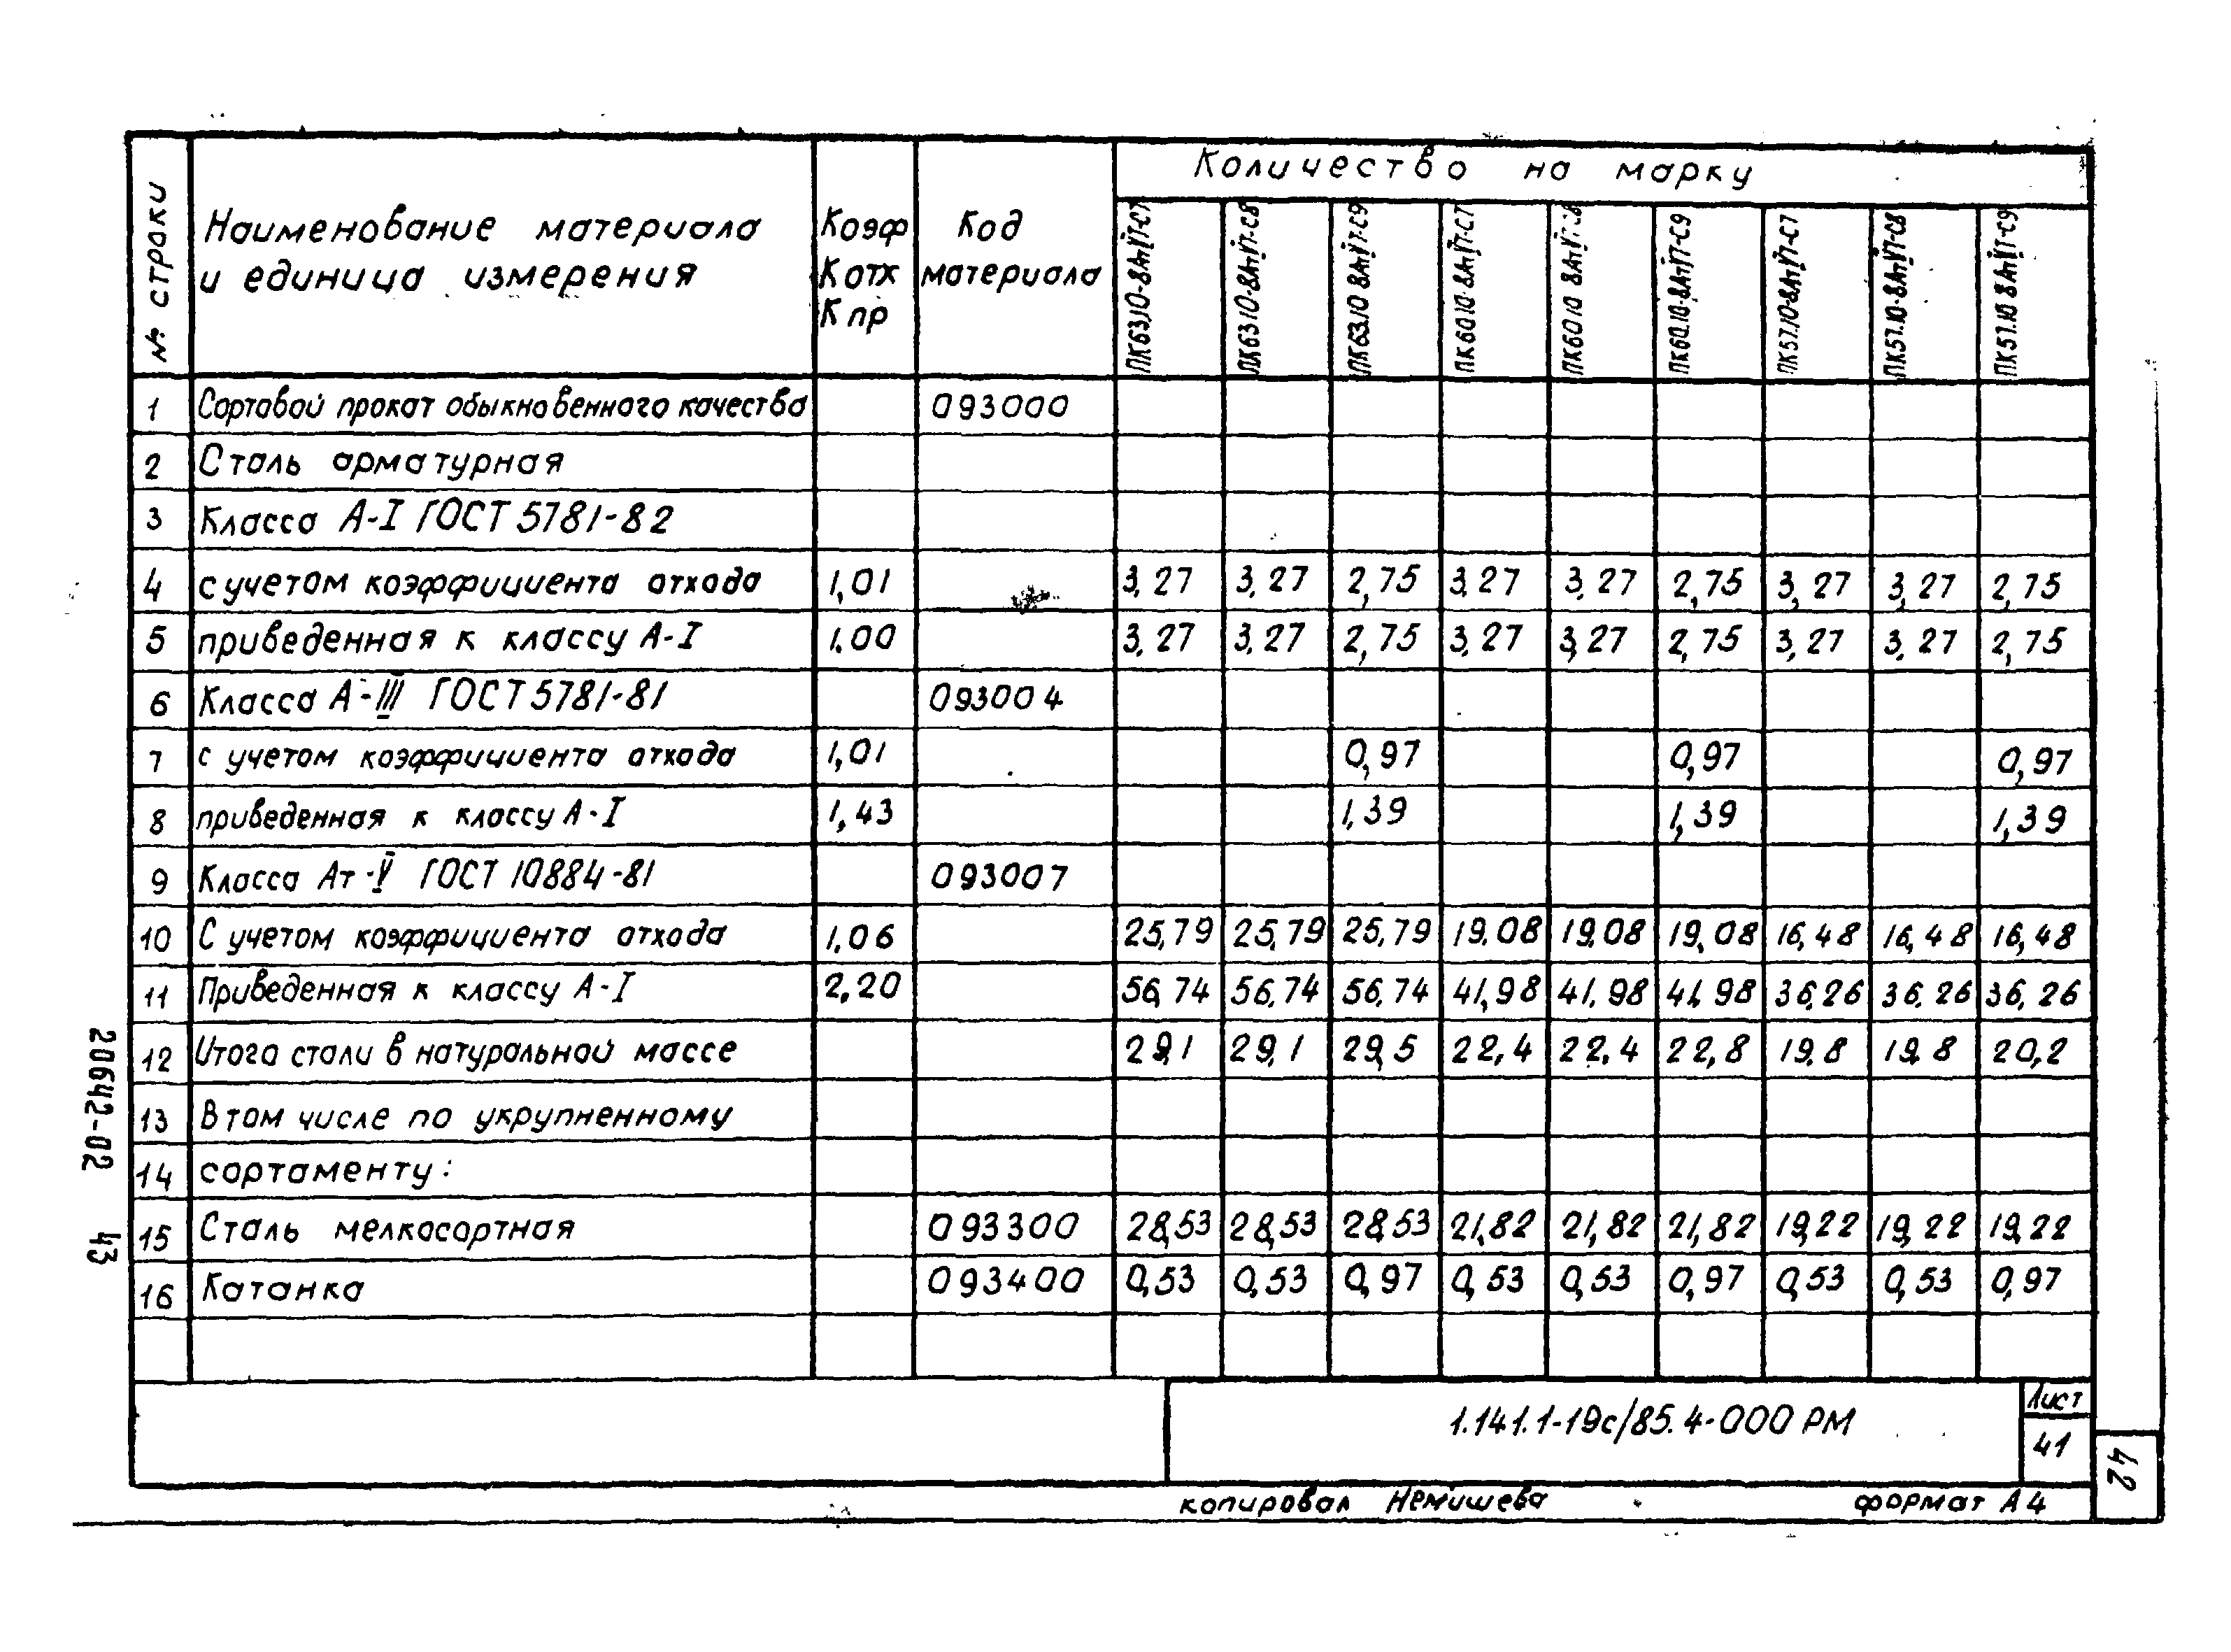 Количество на марку
№ строки
Наименование материала
и единица измерения
Коэф
К отх
К пр
Код
материала
ПК63.10-8АтV-С7 ПК63.10-8АтV-С8 ПК63.10 8АтV-С9 ПК60.10-8АтV-С7 ПК60.10 8АтV-С8 ПК60.10-8АтV-С9 ПК57.10-8АтV-С7 ПК57.10-8АтV-С8 ПК57.10 8АтV-С9
1 Сортовой прокат обыкновенного качества 093000
2 Сталь арматурная
3 Класса А-I ГОСТ 5781-82
4 с учетом коэффициента отхода 1,01 3,27 3,27 2,75 3,27 3,27 2,75 3,27 3,27 2,75
5 приведенная к классу А-I 1.00 3,27 3,27 2,75 3,27 3,27 2,75 3,27 3,27 2,75
6 Класса А-III ГОСТ 5781-81 093004
7 с учетом коэффициента отхода 1,01 0,97 0,97 0,97
8 приведенная к классу А-I 1,43 1,39 1,39 1,39
9 Класса Ат-V ГОСТ 10884-81 093007
10 С учетом коэффициента отхода 1,06 25,79 25,79 25,79 19,08 19,08 19,08 16,48 16,48 16,48
11 Приведенная к классу А-I 2,20 56,74 56,74 56,74 41,98 41,98 41,98 36,26 36,26 36,26
12 Итого стали в натуральной массе 29,1 29,1 29,5 22,4 22,4 22,8 19,8 19,8 20,2
13 В том числе по укрупненному
14 сортаменту:
15 Сталь мелкосортная 093300 28,53 28,53 28,53 21,82 21,82 21,82 19,22 19,22 19,22
16 Катанка 093400 0,53 0,53 0,97 0,53 0,53 0,97 0,53 0,53 0,97
20642-02 43
1.141.1-19с/85.4-000 РМ
Лист
41
42
копировал Немишева формат А4